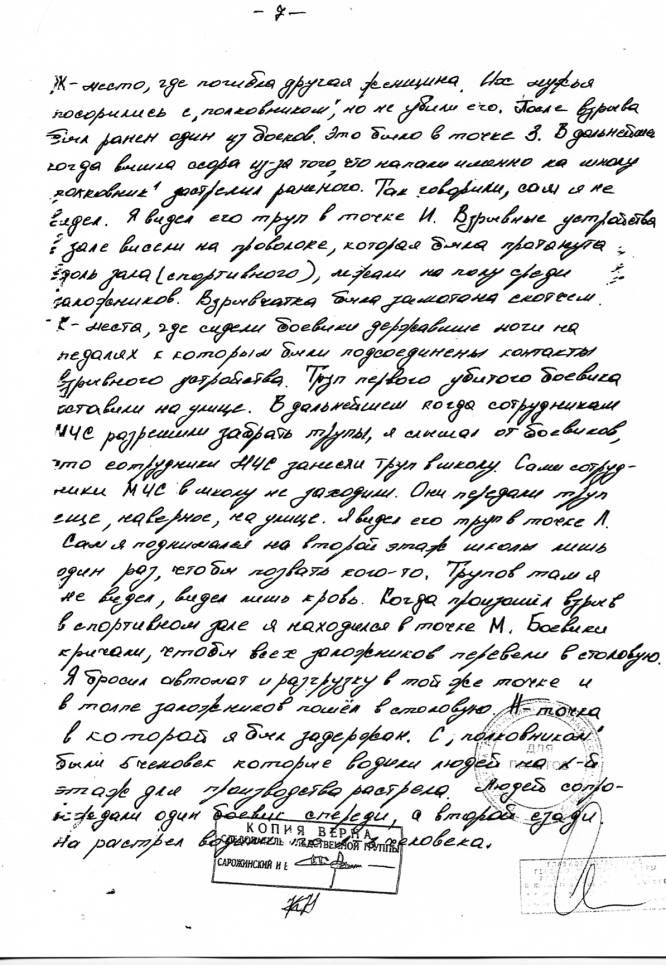 - 7 -
Ж - место, где погибла другая женщина. Их мужья
посорились с "полковником", но не убили его. После взрыва
был ранен один из боевиков. Это было в точке З. В дальнейшем
когда вышла ссора из-за того, что напали именно на школу
"полковник" застрелил раненого. Так говорили, сам я не
видел. Я видел его труп в точке И. Взрывные устройства
в зале висели на проволоке, которая была протянута
вдоль зала (спортивного), лежали на полу среди
заложников. Взрывчатка была замотана скотчем.
К - места, где сидели боевики державшие ноги на
педалях к которым были подсоединены контакты
взрывного устройства. Труп первого убитого боевика
оставили на улице. В дальнейшем когда сотрудникам
МЧС разрешили забрать трупы, я слышал от боевиков,
что сотрудники МЧС занесли труп в школу. Сами сотруд-
ники МЧС в школу не заходили. Они передали труп
еще, наверное, на улице. Я видел его труп в точке Л.
Сам я поднимался на второй этаж школы лишь
один раз, чтобы позвать кого-то. Трупов там я
не видел, видел лишь кровь. Когда произошёл взрыв
в спортивном зале я находился в точке М. Боевики
кричали, чтобы всех заложников перевели в столовую.
Я бросил автомат и разгрузку в той же точке и
в толпе заложников пошёл в столовую. Н - точка
в которой я был задержан. С "полковником"
были 5 человек которые водили людей на 2-й
этаж для производства растрела. Людей сопро-
вождали один боевик спереди, а второй сзади.
На растрел водили человека.
ДЛЯ
КОПИЯ ВЕРНА
СЛЕДОВАТЕЛЬ СЛЕДСТВЕННОЙ ГРУППЫ
САРОЖИНСКИЙ И Е